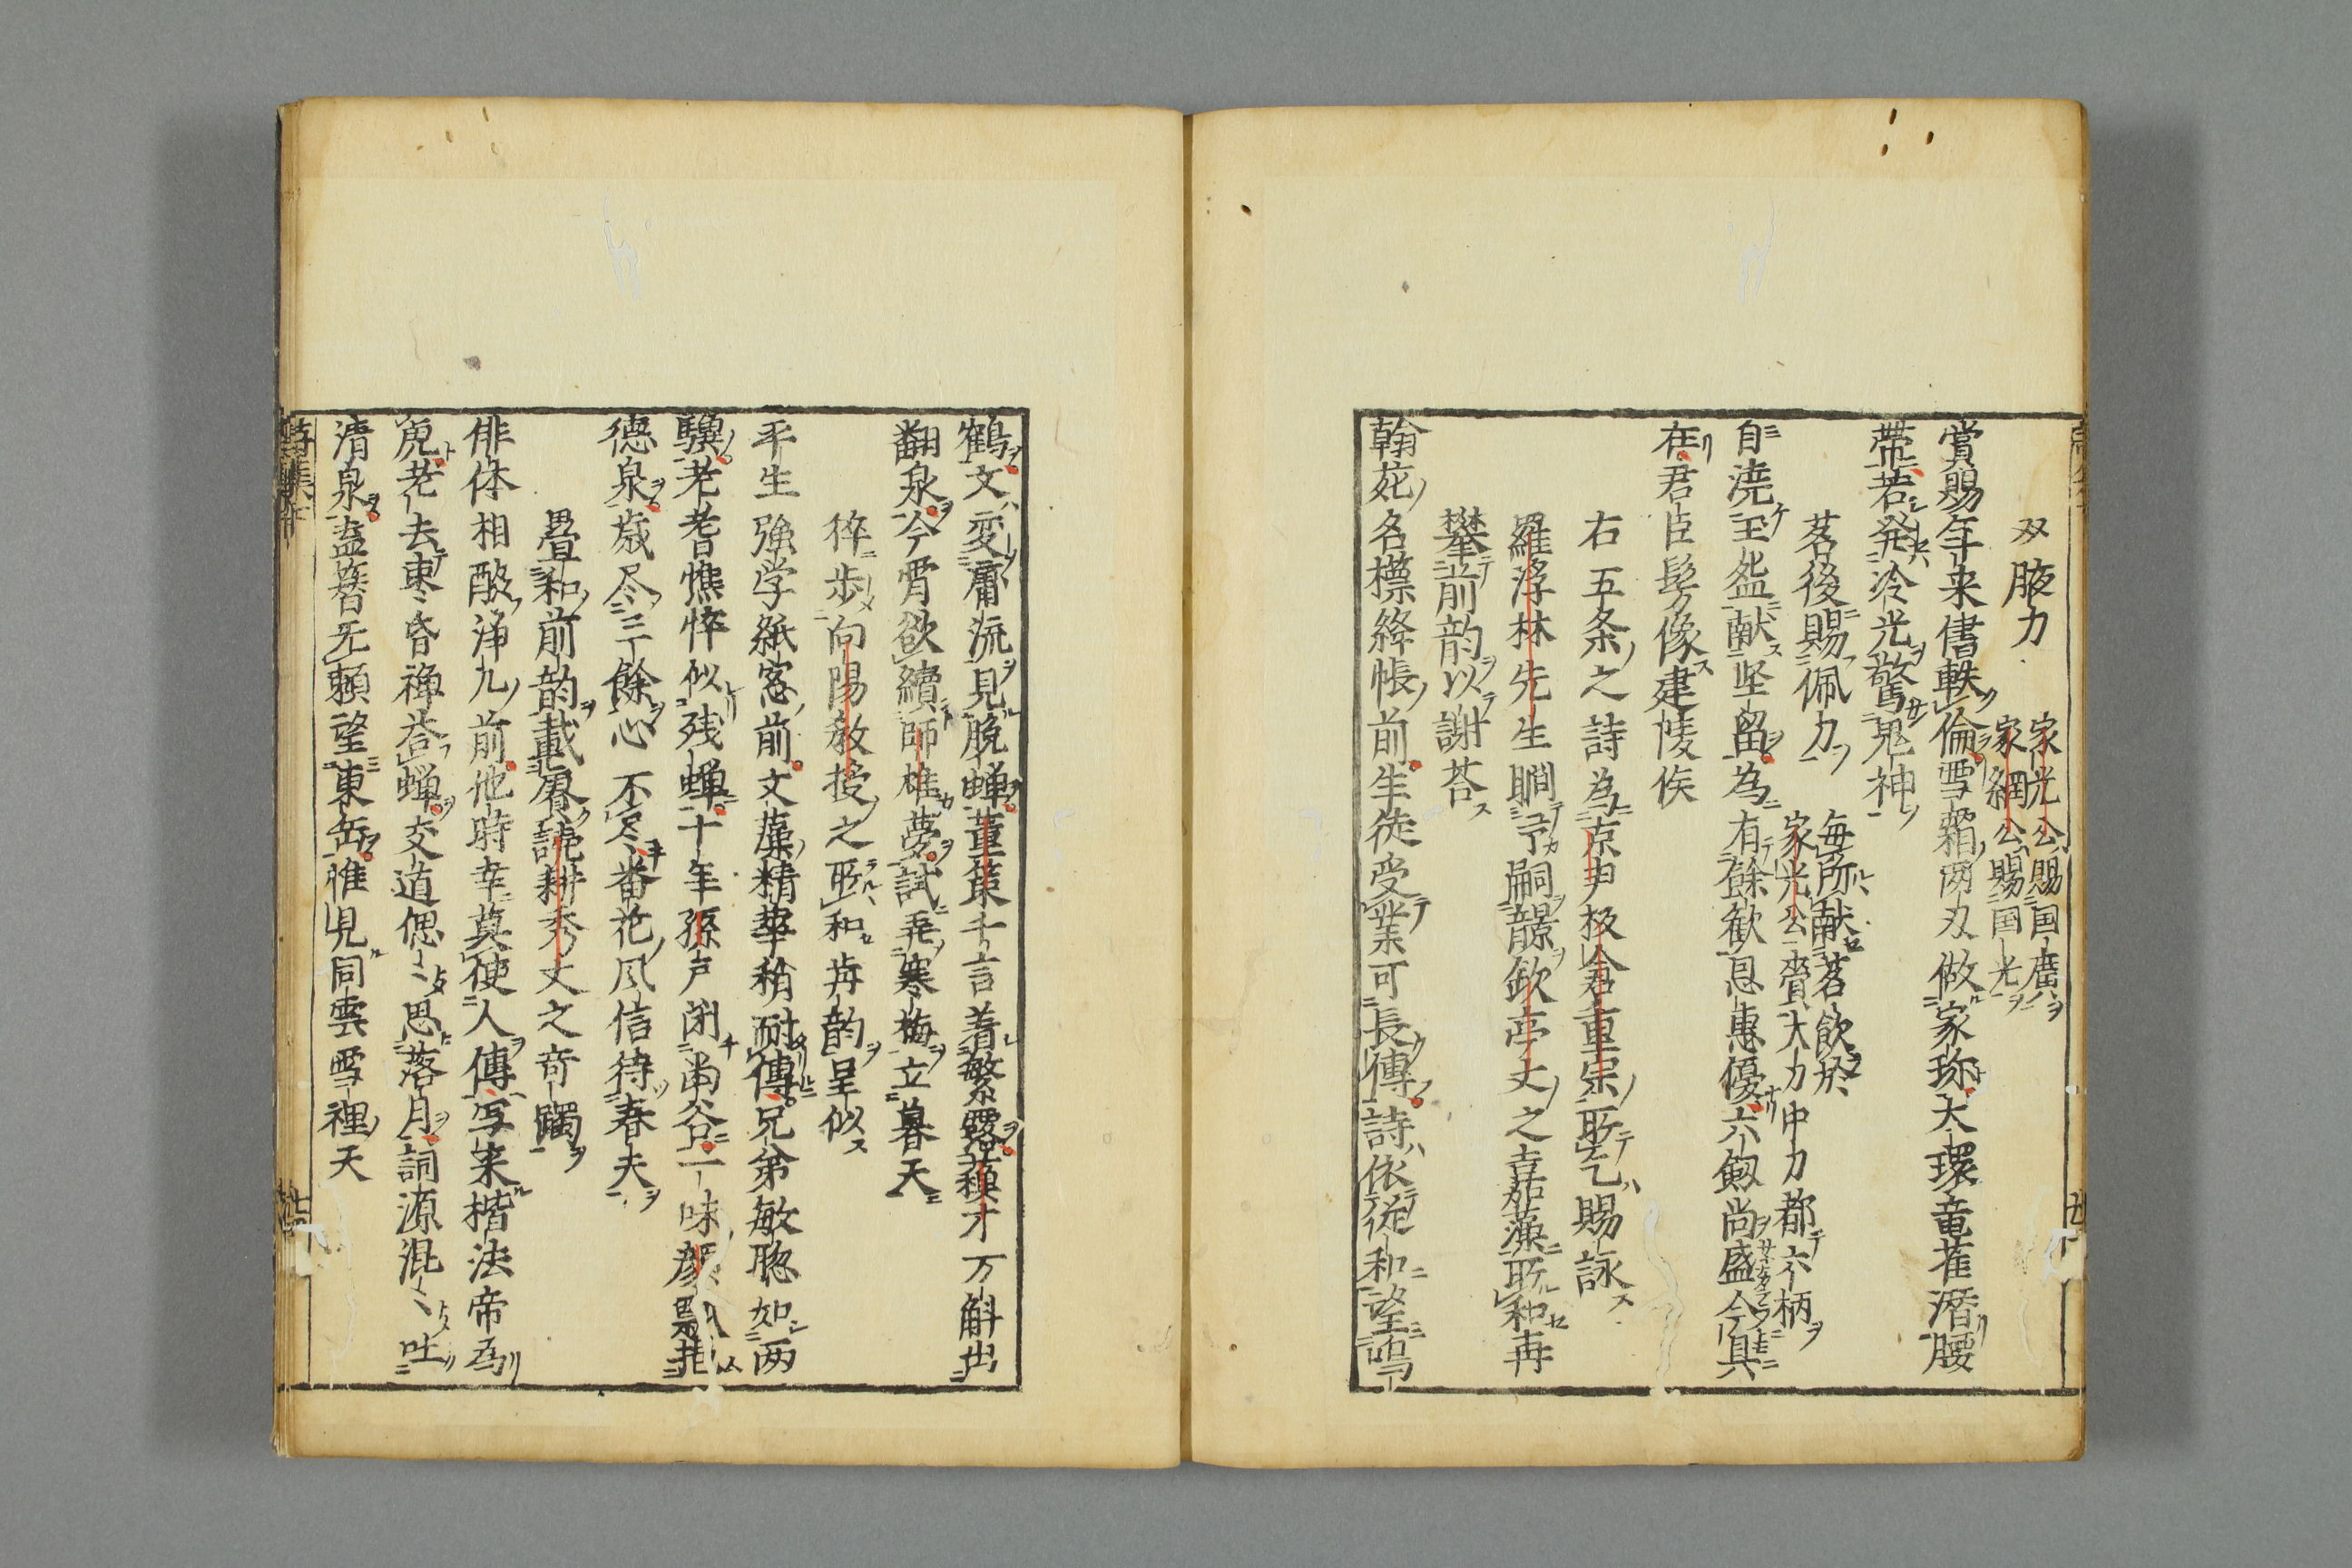 双腋刀
家光公賜国廣
家綱公賜国光
賞賜年来書軼倫雪霜両刃倣家珎太環竜雀潜腰
帯若発冷光驚鬼神
茗後賜佩刀
毎所献茗飲於
家光公賚大刀中刀都六柄
自澆玉盌献坚留為有餘歓恩惠優六劔尚盛今具
在君臣髣像建㥄侯
右五条之詩為京尹板倉重宗所乞賜詠
羅浮林先生瞷予嗣韻欽亭丈之嘉藻所和再
攀前韵以謝荅
翰苑名標絳帳前生徒受業可長傳詩依莚和望鳴
鶴文変庸流見脱蝉董策千言着繁露蘓才万斛出
翻泉今宵欲續師雄夢試弄寒梅立暮天
倅歩向陽教授之所和再韵呈似
平生強学紙窓前文藻精華稍耐傳兄弟敏聡如两
驥老耆憔悴似残蝉十年孫戸閉南谷一味顔瓢挹
德泉歳尽三餘心不尽番花风信待春夫
畳和前韵載賡読耕秀丈之奇躅
俳体相酸浄几前他時幸莫使人傳写来楷法帝為
虎老去東昏禅荅蝉交道偲〻思落月詞源混〻吐
清泉盍簪无頼望東岳惟見同雲雪裡天